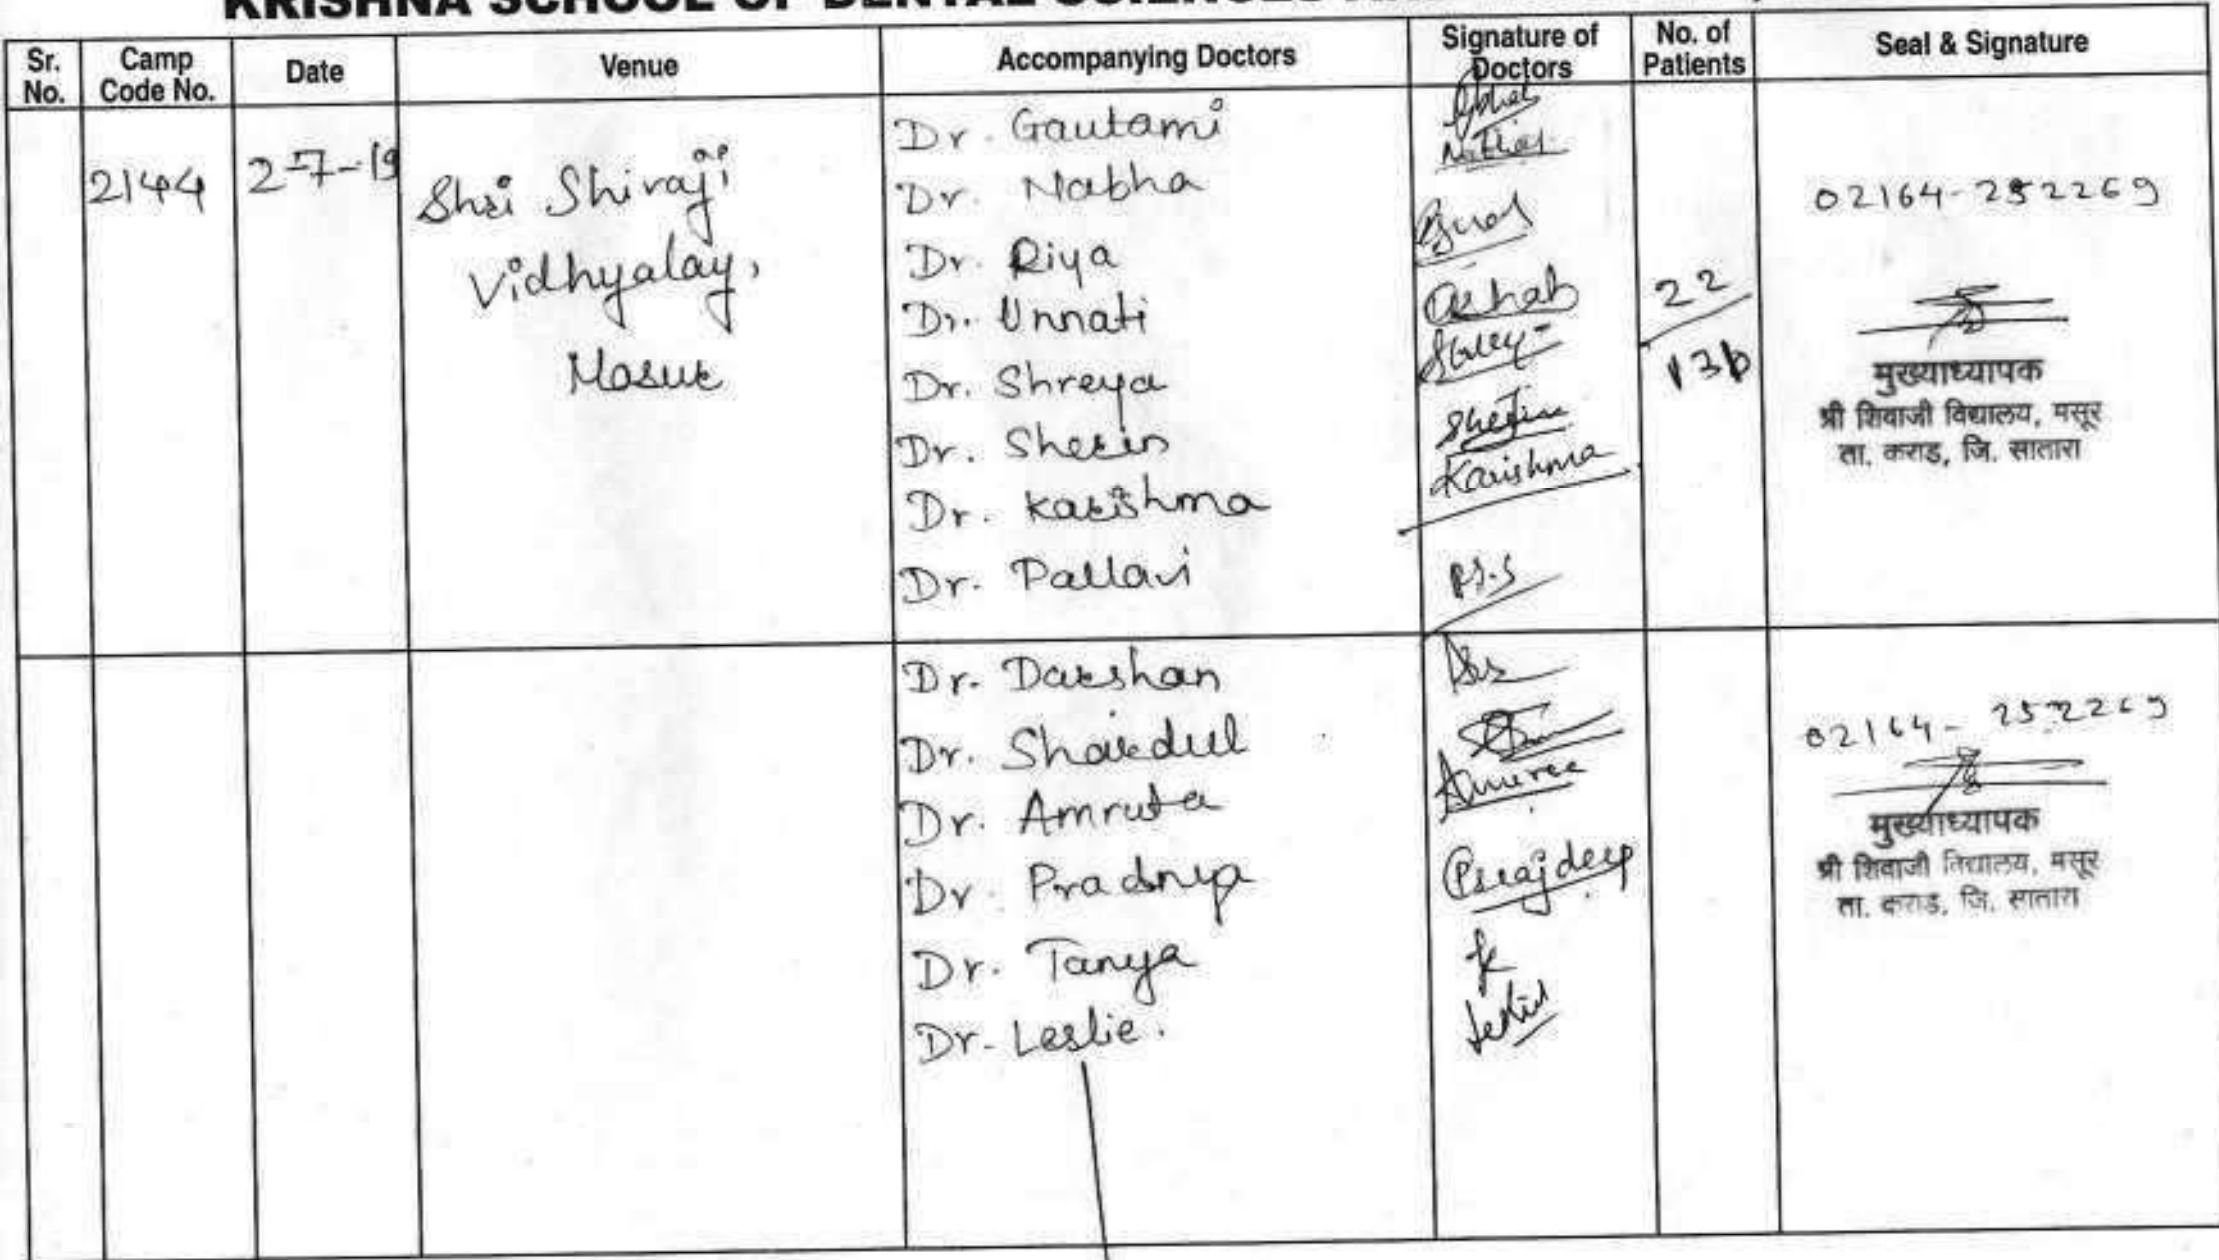 KRISHNA SCHOOL OF DENTAL SCIENCES
Sr. No. Camp Code No. Date Venue Accompanying Doctors Signature of Doctors No. of Patients Seal & Signature
2144 2-7-19
Shri Shivaji
Vidhyalay,
Masur
Dr. Gautami
Dr. Nabha
Dr. Riya
Dr. Unnati
Dr. Shreya
Dr. Sherin
Dr. Karishma
Dr. Pallavi
Karishma
P.S.S
22
136
02164-252269
मुख्याध्यापक
श्री शिवाजी विद्यालय, मसूर
ता. कराड, जि. सातारा
Dr. Darshan
Dr. Shardul
Dr. Amruta
Dr. Pradnya
Dr. Tanya
Dr. Leslie.
02164-252269
मुख्याध्यापक
श्री शिवाजी विद्यालय, मसूर
ता. कराड, जि. सातारा